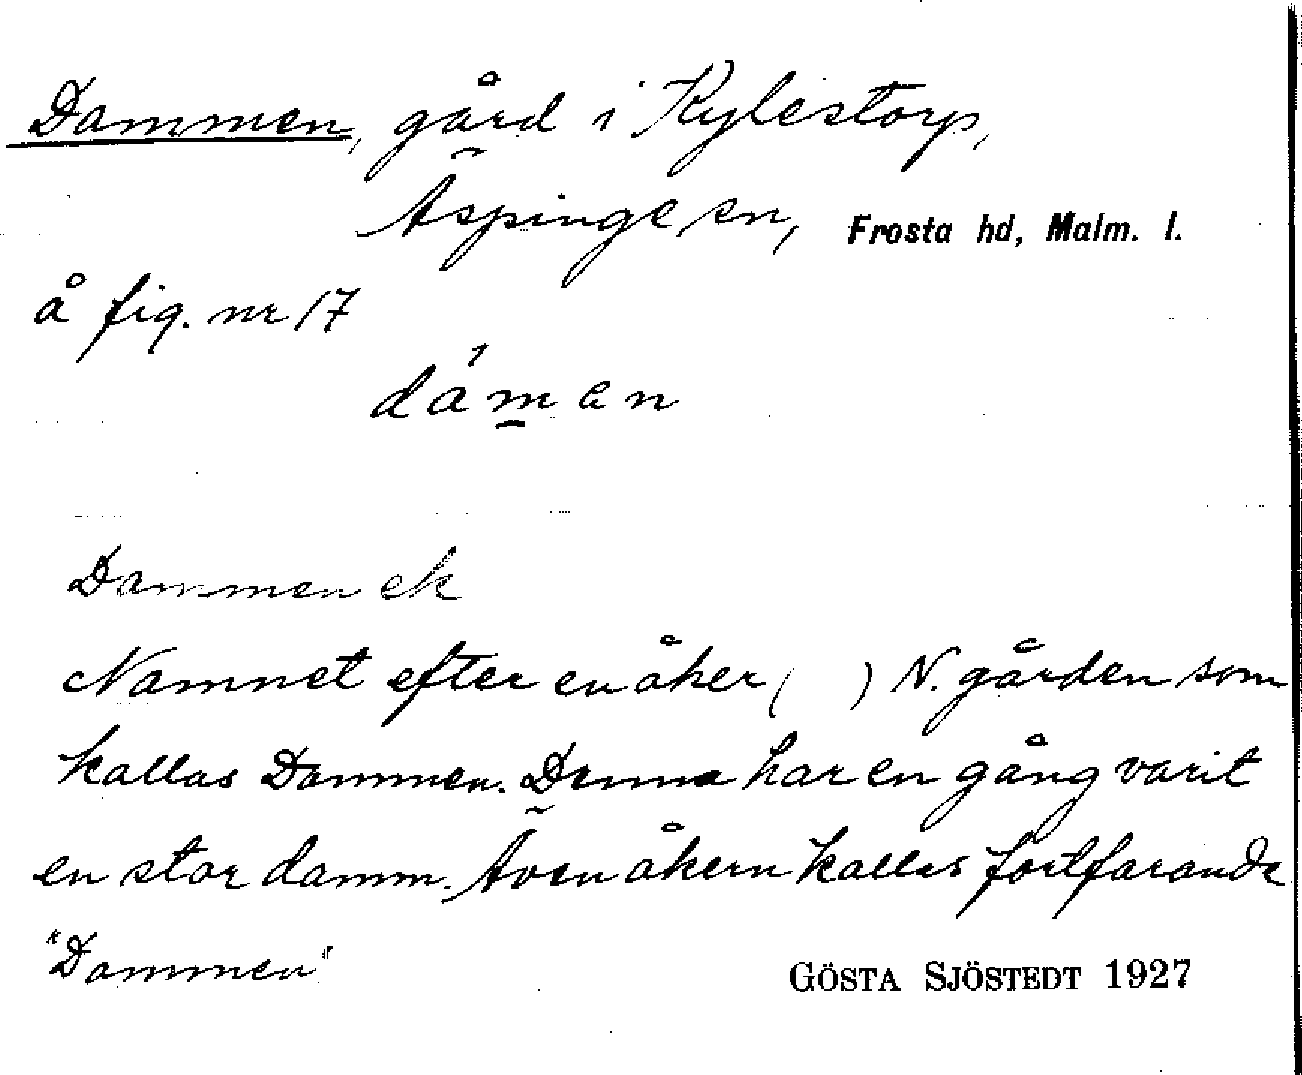 Dammen, gård i Kylestorp,
Äspinge sn, Frosta hd, Malm. l.
å fig. nr 17
dám̲en
Dammen ek
Namnet efter en åker ( ) N. gården som
kallas Dammen. Denna har en gång varit
en stor damm. Även åkern kallas fortfarande
"Dammen"
GÖSTA SJÖSTEDT 1927